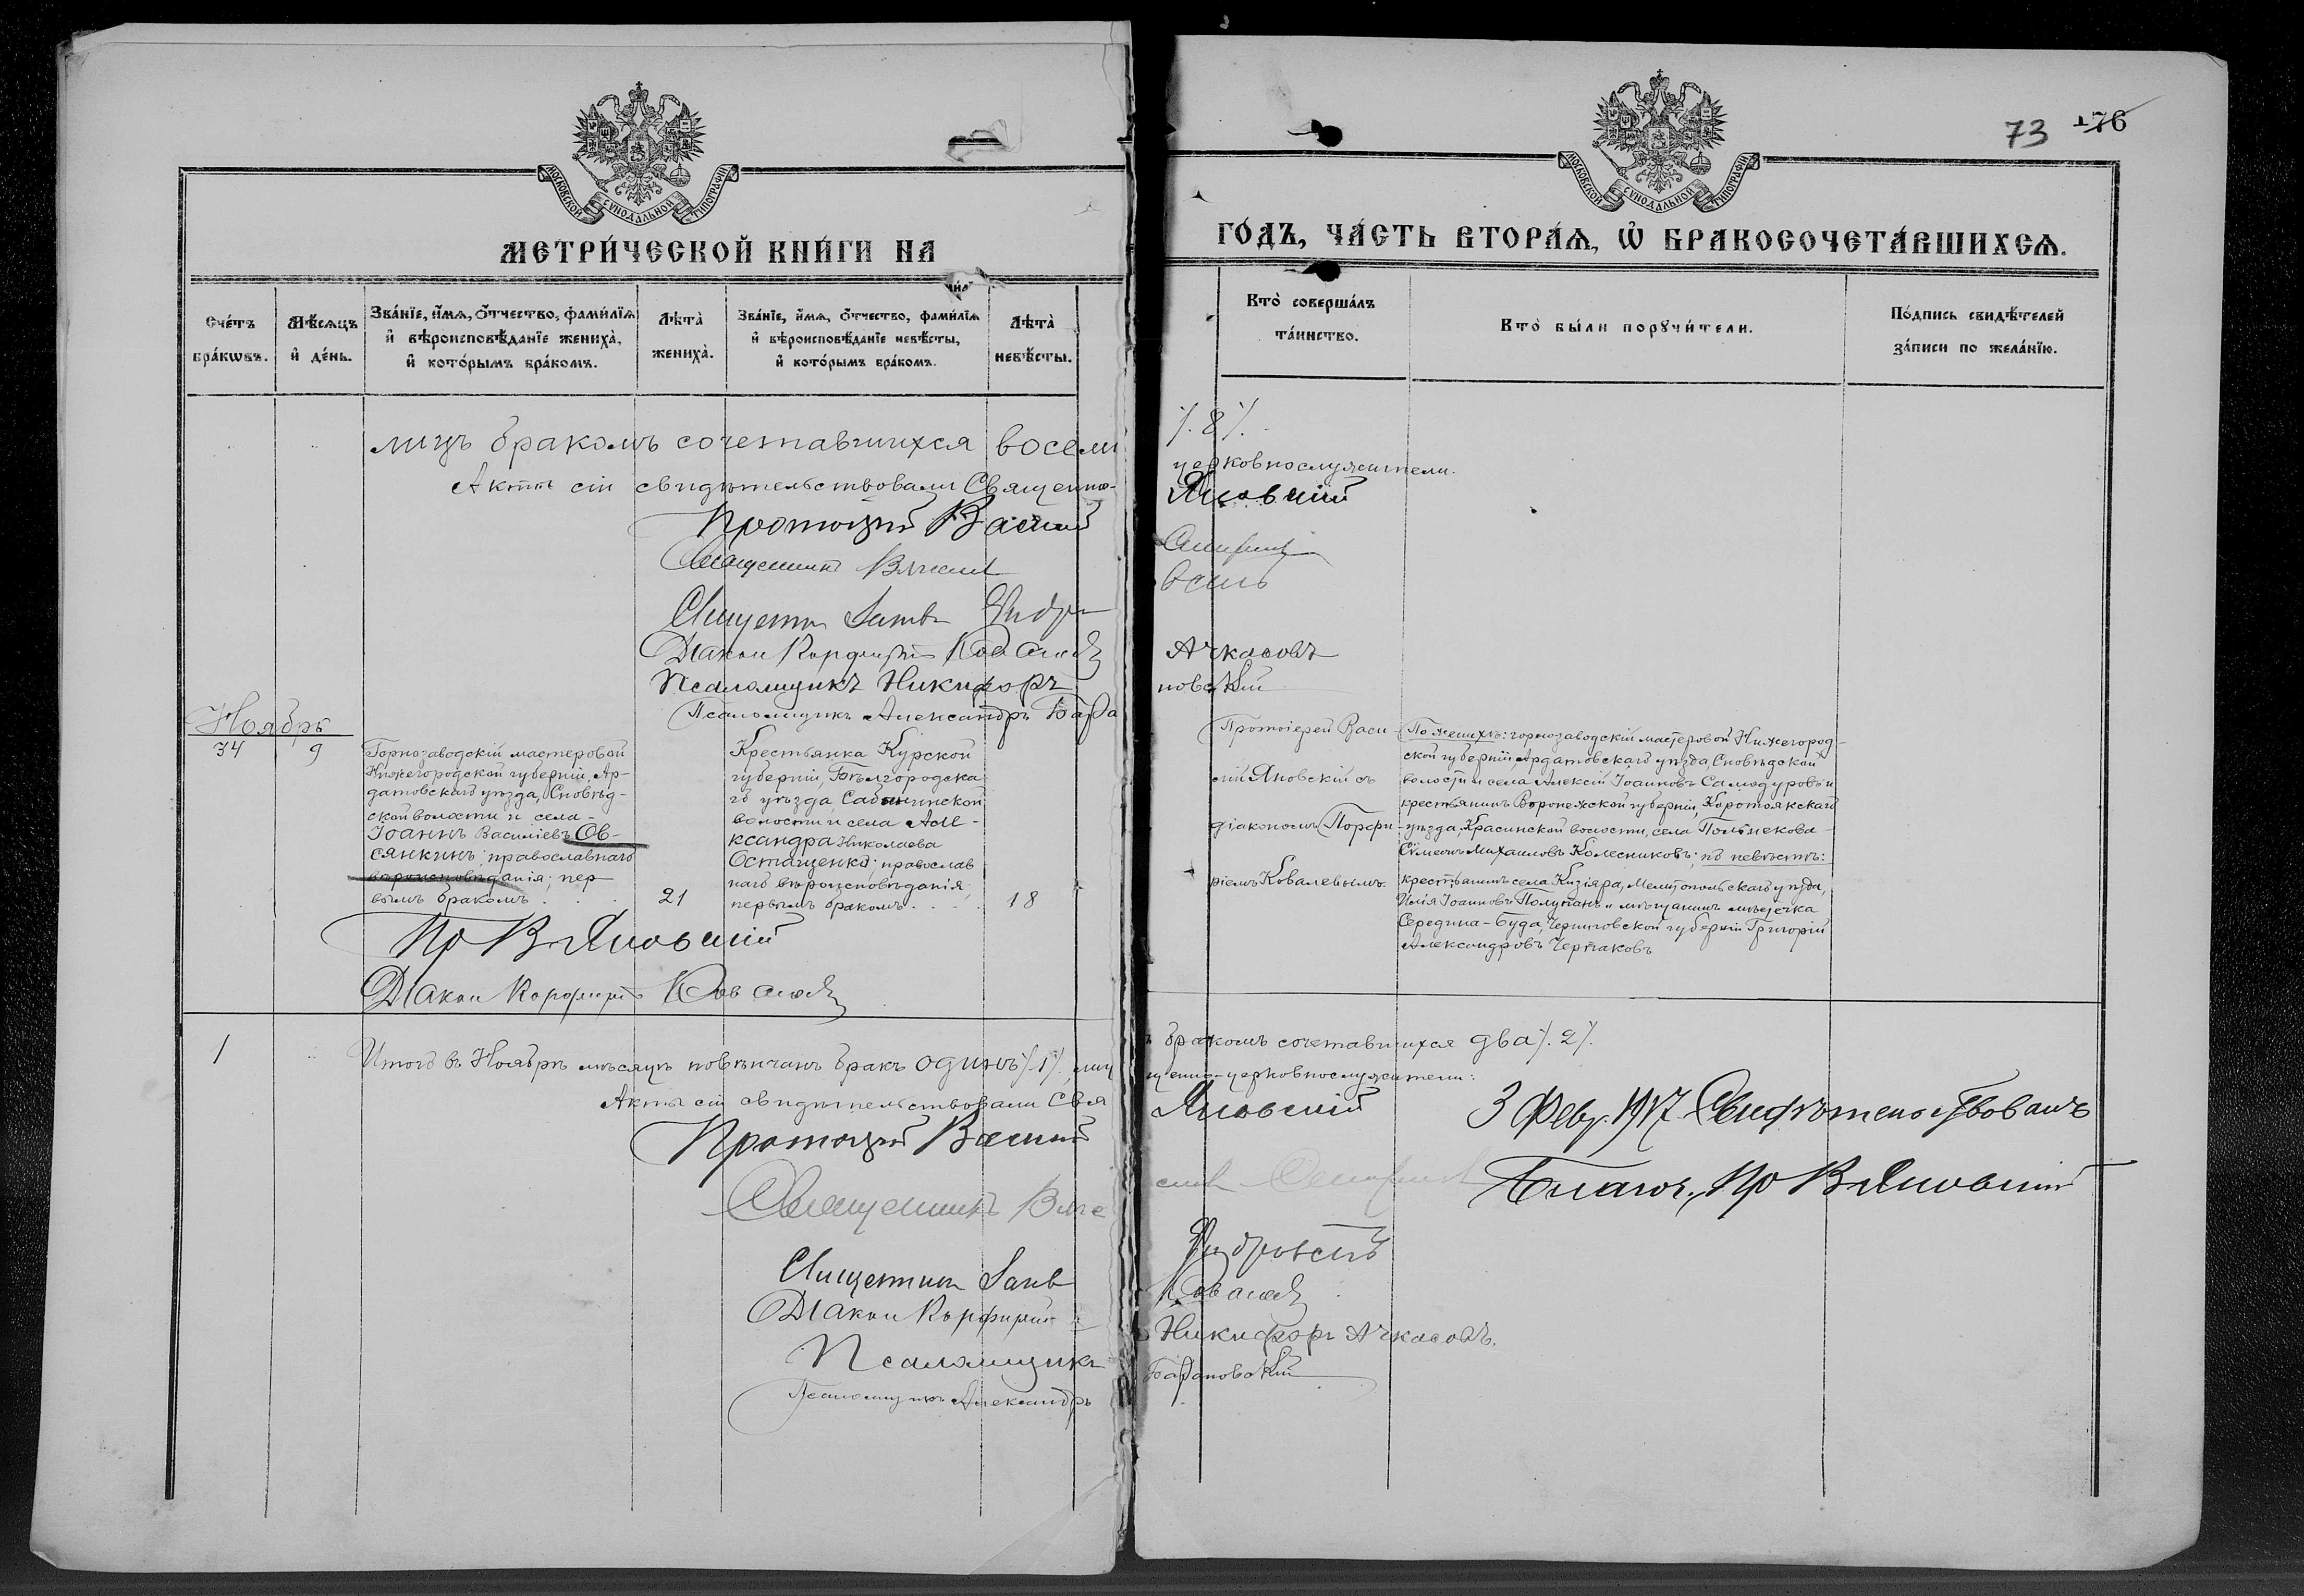 МОСКОВСКОЙ СѴНОДАЛЬНОЙ ТИПОГРАФІИ
МЕТРИ́ЧЕСКОЙ КНИ́ГИ НА
Сче́тъ бра́кѡвъ.
Мѣ́сяцъ и҆ де́нь.
Зва́нїе, и҆́мѧ, ѻ҆́тчество, фами́лїѧ и҆ вѣроисповѣ́данїе жениха̀, и҆ кото́рымъ бра́комъ.
Лѣ́та̀ жениха̀.
Зва́нїе, и҆́мѧ, ѻ҆́тчество, фами́лїѧ и҆ вѣроисповѣ́данїе невѣ́сты, и҆ кото́рымъ бра́комъ.
Лѣ́та̀ невѣ́сты.
лицъ бракомъ сочетавшихся восемь
Акты сіи свидѣтельствовали Священно-
Протоіерей Василій
Священникъ
Діакон Порфирій Ковалевъ
Псаломщикъ Никифоръ
Псаломщикъ Александръ Бара
Ноябрь
34
9
Горнозаводскій мастеровой
Нижегородской губерніи, Ар-
датовскаго уѣзда, Сновѣд-
ской волости и села -
Іоаннъ Василіевъ Ов-
сянкинъ; православнаго
вѣроисповѣданія; пер
вымъ бракомъ . . .
21
Крестьянка Курской
губерніи, Бѣлгородска
го уѣзда, Сабынинской
волости и села Але-
ксандра Николаева
Остащенко; православ
наго вѣроисповѣданія,
первымъ бракомъ . . .
18
Пр В Яновскій
Діакон Порфирій Ковалевъ
1
Итого въ Ноябрѣ мѣсяцѣ повѣнчанъ бракъ одинъ /.1/., лиц
Акты сіи свидѣтельствовали Свя
Протоіерей Василій
Священникъ
Діакон Порфирій
Псаломщикъ
Псаломщикъ Александръ
73
176
МОСКОВСКОЙ СѴНОДАЛЬНОЙ ТИПОГРАФІИ
ГО́ДЪ, ЧА́СТЬ ВТОРА́Ѧ, Ѡ҆ БРАКОСОЧЕТА́ВШИХСѦ.
Кто̀ соверша́лъ та́инство.
Кто̀ бы́ли порꙋчи́тели.
По́дпись свидѣ́телей за́писи по жела́нїю.
/.8/.
церковнослужители.
Яновскій
Ачкасовъ
новскій
Протоіерей Васи-
лій Яновскій съ
діакономъ Порфи-
ріемъ Ковалевымъ.
По женихѣ: горнозаводскій мастеровой Нижегород-
ской губерніи, Ардатовскаго уѣзда, Сновѣдской
волости и села Алексій Іоанновъ Самодуровъ и
крестьянинъ Воронежской губерніи, Коротоякскаго
уѣзда, Красинской волости, села
Сѵмеонъ Михаиловъ Колесниковъ; по невѣстѣ:
крестьянинъ села Кизіяра, Мелитопольскаго уѣзда,
Илія Іоанновъ Полупанъ и мѣщанинъ мѣстечка
Середина-Буда, Черниговской губерніи Григорій
Александровъ Чертаковъ
ъ бракомъ сочетавшихся два /.2/.
щенно-церковнослужители:
Яновскій
3 Февр. 1917 Свидѣтельствовалъ
Благоч., Пр В Яновскій
Ковалевъ
Никифоръ Ачкасовъ.
Барановскій